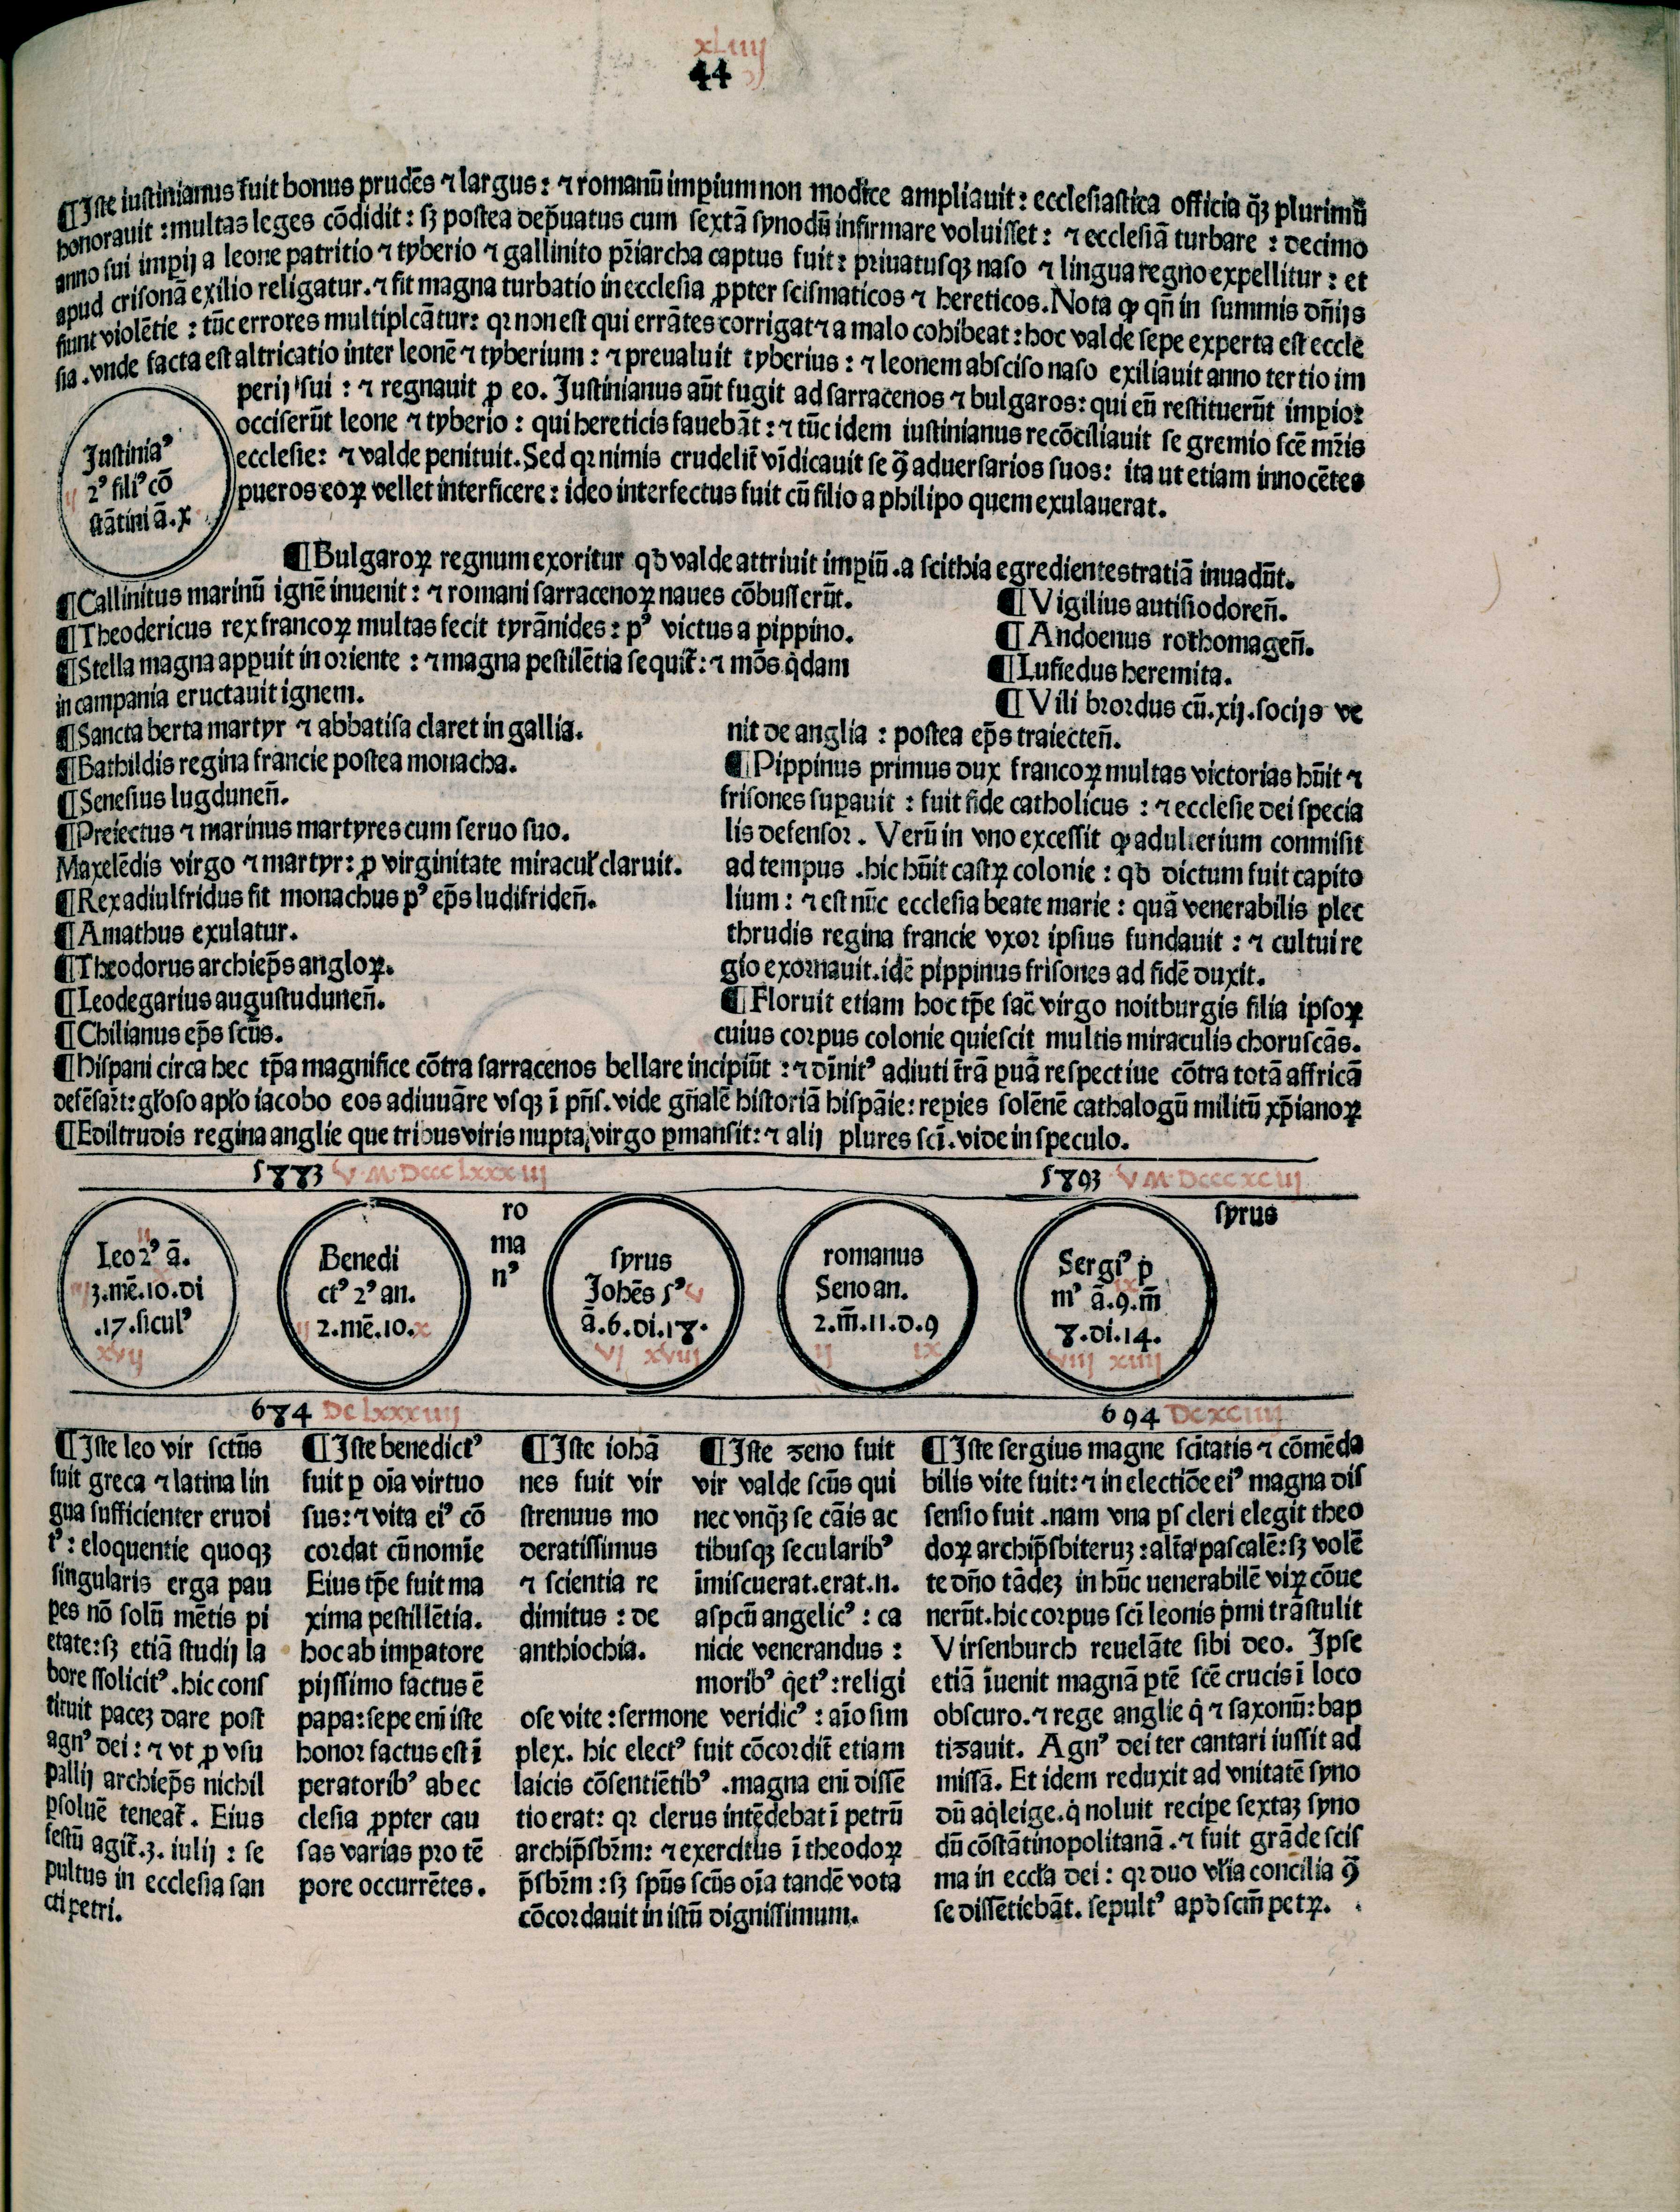 xliiij
44
¶Iste iustinianus fuit bonus prudēs ⁊ largus: ⁊ romanū imꝑium non modice ampliauit: ecclesiastica officia q̄ꝫ plurimū
honorauit: multas leges cōdidit: sꝫ postea dep̄uatus cum sextā synodū infirmare voluisset: ⁊ ecclesiā turbare: decimo
anno sui imꝑij a leone patritio ⁊ tyberio ⁊ gallinito pr̄iarcha captus fuit: priuatusqꝫ naso ⁊ lingua regno expellitur: et
apud crisonā exilio religatur. ⁊ fit magna turbatio in ecclesia ꝓpter scismaticos ⁊ hereticos. Nota ꝙ qn̄ in summis dn̄ijs
fiunt violētie: tūc errores multiplcātur: qꝛ non est qui errātes corrigat ⁊ a malo cohibeat: hoc valde sepe experta est eccle
sia. vnde facta est altricatio inter leonē ⁊ tyberium: ⁊ preualuit tyberius: ⁊ leonem absciso naso exiliauit anno tertio im
perij sui: ⁊ regnauit ꝓ eo. Iustinianus aūt fugit ad sarracenos ⁊ bulgaros: qui eū restituerūt imꝑio:
occiserūt leone ⁊ tyberio: qui hereticis fauebāt: ⁊ tūc idem iustinianus recōciliauit se gremio scē mr̄is
ecclesie: ⁊ valde penituit. Sed qꝛ nimis crudelit̄ vīdicauit se ꝯ̄ aduersarios suos: ita ut etiam innocētes
pueros eoꝝ vellet interficere: ideo interfectus fuit cū filio a philipo quem exulauerat.
Iustinia⁹
2⁹ fili⁹ cō
stātini ā. x
¶Bulgaroꝝ regnum exoritur qđ valde attriuit imꝑiū. a scithia egredientes tratiā inuadūt.
¶Callinitus marinū ignē inuenit: ⁊ romani sarracenoꝝ naues cōbusserūt.
¶Theodericus rex francoꝝ multas fecit tyrānides: p⁹ victus a pippino.
¶Stella magna apꝑuit in oriente: ⁊ magna pestilētia sequit̄: ⁊ mōs q̇dam
in campania eructauit ignem.
¶Sancta berta martyr ⁊ abbatisa claret in gallia.
¶Bathildis regina francie postea monacha.
¶Senesius lugdunen̄.
¶Preiectus ⁊ marinus martyres cum seruo suo.
Maxelēdis virgo ⁊ martyr: ꝓ virginitate miracul̄ claruit.
¶Rex adiulfridus fit monachus p⁹ ep̄s ludifriden̄.
¶Amathus exulatur.
¶Theodorus archiep̄s angloꝝ.
¶Leodegarius augustudunen̄.
¶Chilianus ep̄s scūs.
¶Vigilius autisiodoren̄.
¶Andoenus rothomagen̄.
¶Lufiedus heremita.
¶Vili brordus cū. xij. socijs ve
nit de anglia: postea ep̄s traiecten̄.
¶Pippinus primus dux francoꝝ multas victorias hūit ⁊
frisones suꝑauit: fuit fide catholicus: ⁊ ecclesie dei specia
lis defensor. Verū in vno excessit ꝙ adulterium conmisit
ad tempus. hic hūit castꝝ colonie: qđ dictum fuit capito
lium: ⁊ est nūc ecclesia beate marie: quā venerabilis plec
thrudis regina francie vxor ipsius fundauit: ⁊ cultui re
gio exornauit. idē pippinus frisones ad fidē duxit.
¶Floruit etiam hoc tꝑe sac̄ virgo noitburgis filia ipsoꝝ
cuius corpus colonie quiescit multis miraculis choruscās.
¶Hispani circa hec tꝑa magnifice cōtra sarracenos bellare incipiūt: ⁊ dīnit⁹ adiuti t̄rā ꝑuā respectiue cōtra totā affricā
defēsar̄t: gl̄oso apl̄o iacobo eos adiuuāre vsqꝫ ī pn̄s. vide gn̄alē historiā hispāie: reꝑies solēnē cathalogū militū xp̄ianoꝝ
¶Ediltrudis regina anglie que tribus viris nupta, virgo ꝑmansit: ⁊ alij plures sci. vide in speculo.
5883 V M Dccclxxxiij
5893 V M Dcccxciij
Leo 2⁹ ā.
3. mē. 10. di
.17. sicul⁹
xvij
Benedi
ct⁹ 2⁹ an.
2. mē. 10. x
ro
ma
n⁹
syrus
Iohēs 5⁹ v
ā. 6. di. 18.
vj xviij
romanus
Seno an.
2. m̄. 11. d. 9
ij ix
Sergi⁹ p̄
m⁹ ā. 9. m̄
8. di. 14.
viij xiiij
syrus
684 Dclxxxiiij
694 Dcxciiij
¶Iste leo vir sctūs
fuit greca ⁊ latina lin
gua sufficienter erudi
t⁹: eloquentie quoqꝫ
singularis erga pau
pes nō solū mētis pi
etate: sꝫ etiā studij la
bore ssolicit⁹. hic cons
tituit pacez dare post
agn⁹ dei: ⁊ vt ꝓ vsu
pallij archiep̄s nichil
ꝑsoluē teneat̄. Eius
festū agit̄. 3. iulij: se
pultus in ecclesia san
cti petri.
¶Iste benedict⁹
fuit ꝑ oīa virtuo
sus: ⁊ vita ei⁹ cō
cordat cū nomīe
Eius tꝑe fuit ma
xima pestillētia.
hoc ab imꝑatore
pijssimo factus ē
papa: sepe enī iste
honor factus est ī
peratorib⁹ ab ec
clesia ꝓpter cau
sas varias pro tē
pore occurrētes.
¶Iste iohā
nes fuit vir
strenuus mo
deratissimus
⁊ scientia re
dimitus: de
anthiochia.
¶Iste zeno fuit
vir valde scūs qui
nec vnqꝫ se cāis ac
tibusqꝫ secularib⁹
īmiscuerat. erat. n.
aspcū angelic⁹: ca
nicie venerandus:
morib⁹ q̇et⁹: religi
ose vite: sermone veridic⁹: aīo sim
plex. hic elect⁹ fuit cōcordit̄ etiam
laicis cōsentiētib⁹. magna enī dissē
tio erat: qꝛ clerus intēdebat ī petrū
archip̄sbr̄m: ⁊ exercitus ī theodoꝝ
p̄sbr̄m: sꝫ spūs scūs oīa tandē vota
cōcordauit in istū dignissimum.
¶Iste sergius magne scitatis ⁊ cōmēda
bilis vite fuit: ⁊ in electiōe ei⁹ magna dis
sensio fuit. nam vna ps cleri elegit theo
doꝝ archip̄sbiteruꝫ: alt̄a pascalē: sꝫ volē
te dn̄o tādeꝫ in hūc uenerabilē viꝝ cōue
nerūt. hic corpus sci leonis p̄mi trāstulit
Virsenburch reuelāte sibi deo. Ipse
etiā īuenit magnā ꝑtē scē crucis ī loco
obscuro. ⁊ rege anglie q̇ ⁊ saxonū: bap
tizauit. Agn⁹ dei ter cantari iussit ad
missā. Et idem reduxit ad vnitatē syno
dū aq̇leige. q̇ noluit reciꝑe sextaꝫ syno
dū cōstātinopolitanā. ⁊ fuit grāde scis
ma in eccl̄a dei: qꝛ duo vl̄ia concilia ꝯ̄
se dissētiebāt. sepult⁹ apđ scm̄ petꝝ.